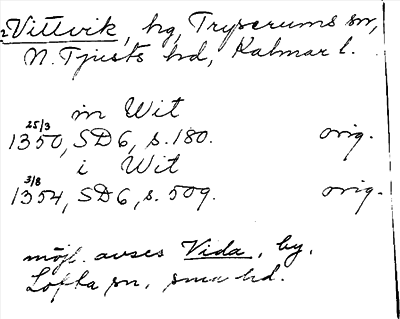 2Vittvik, hg, Tryserums sn,
N. Tjusts hd, Kalmar l.
in Wit
25/3
1350, SD6, s. 180. orig.
i Wit
3/8
1354, SD6, s. 509. orig.
möjl. avses Vida, by,
Lofta sn, smn hd.